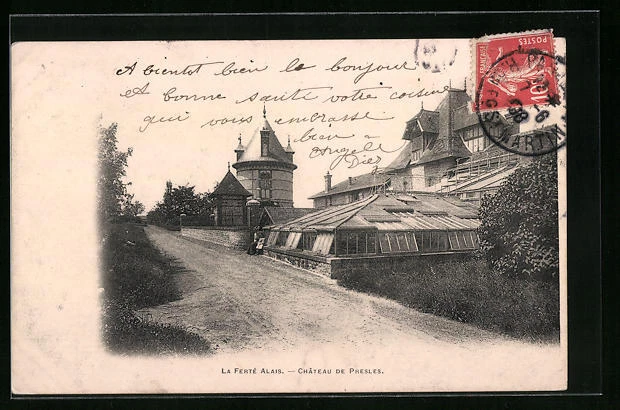 A bientot bien le bonjour
A bonne santé votre cousine
qui vous embrasse
bien
Angele
POSTES
LA FERTÉ ALAIS. — CHÂTEAU DE PRESLES.